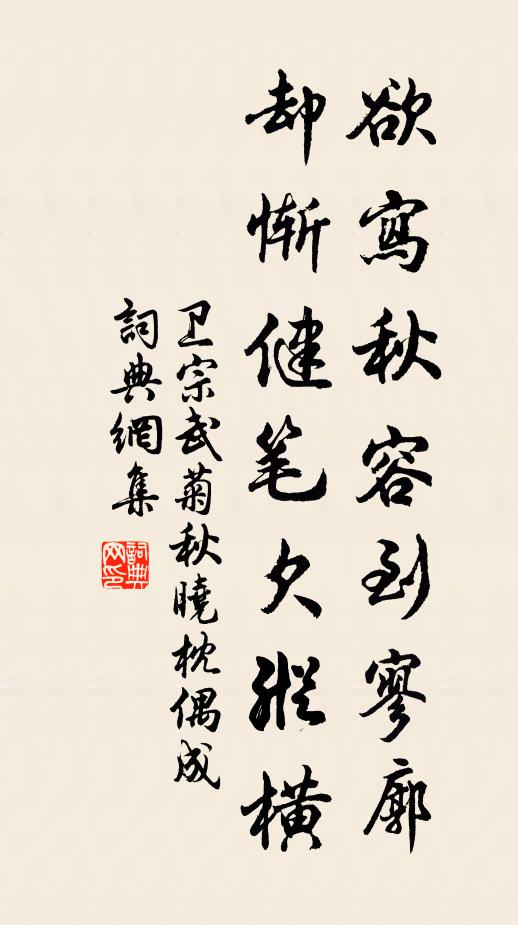 欲寫秋容到寥廓
却慚健笔欠縱橫
卫宗武菊秋曉枕偶成
詞典網集
詞典网印